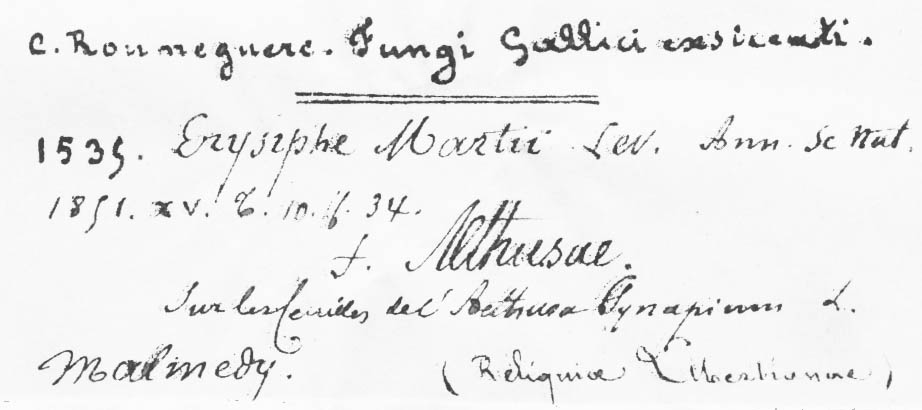 C. Roumeguere. Fungi Gallici exsiccati.
1535. Erysiphe Martii Lev. Ann. Sc Nat.
1851. XV. t. 10. f. 34.
f. Aethusae.
Sur les feuilles de l'Aethusa Cynapium L.
Malmedy. (Reliquiae Libertianae)